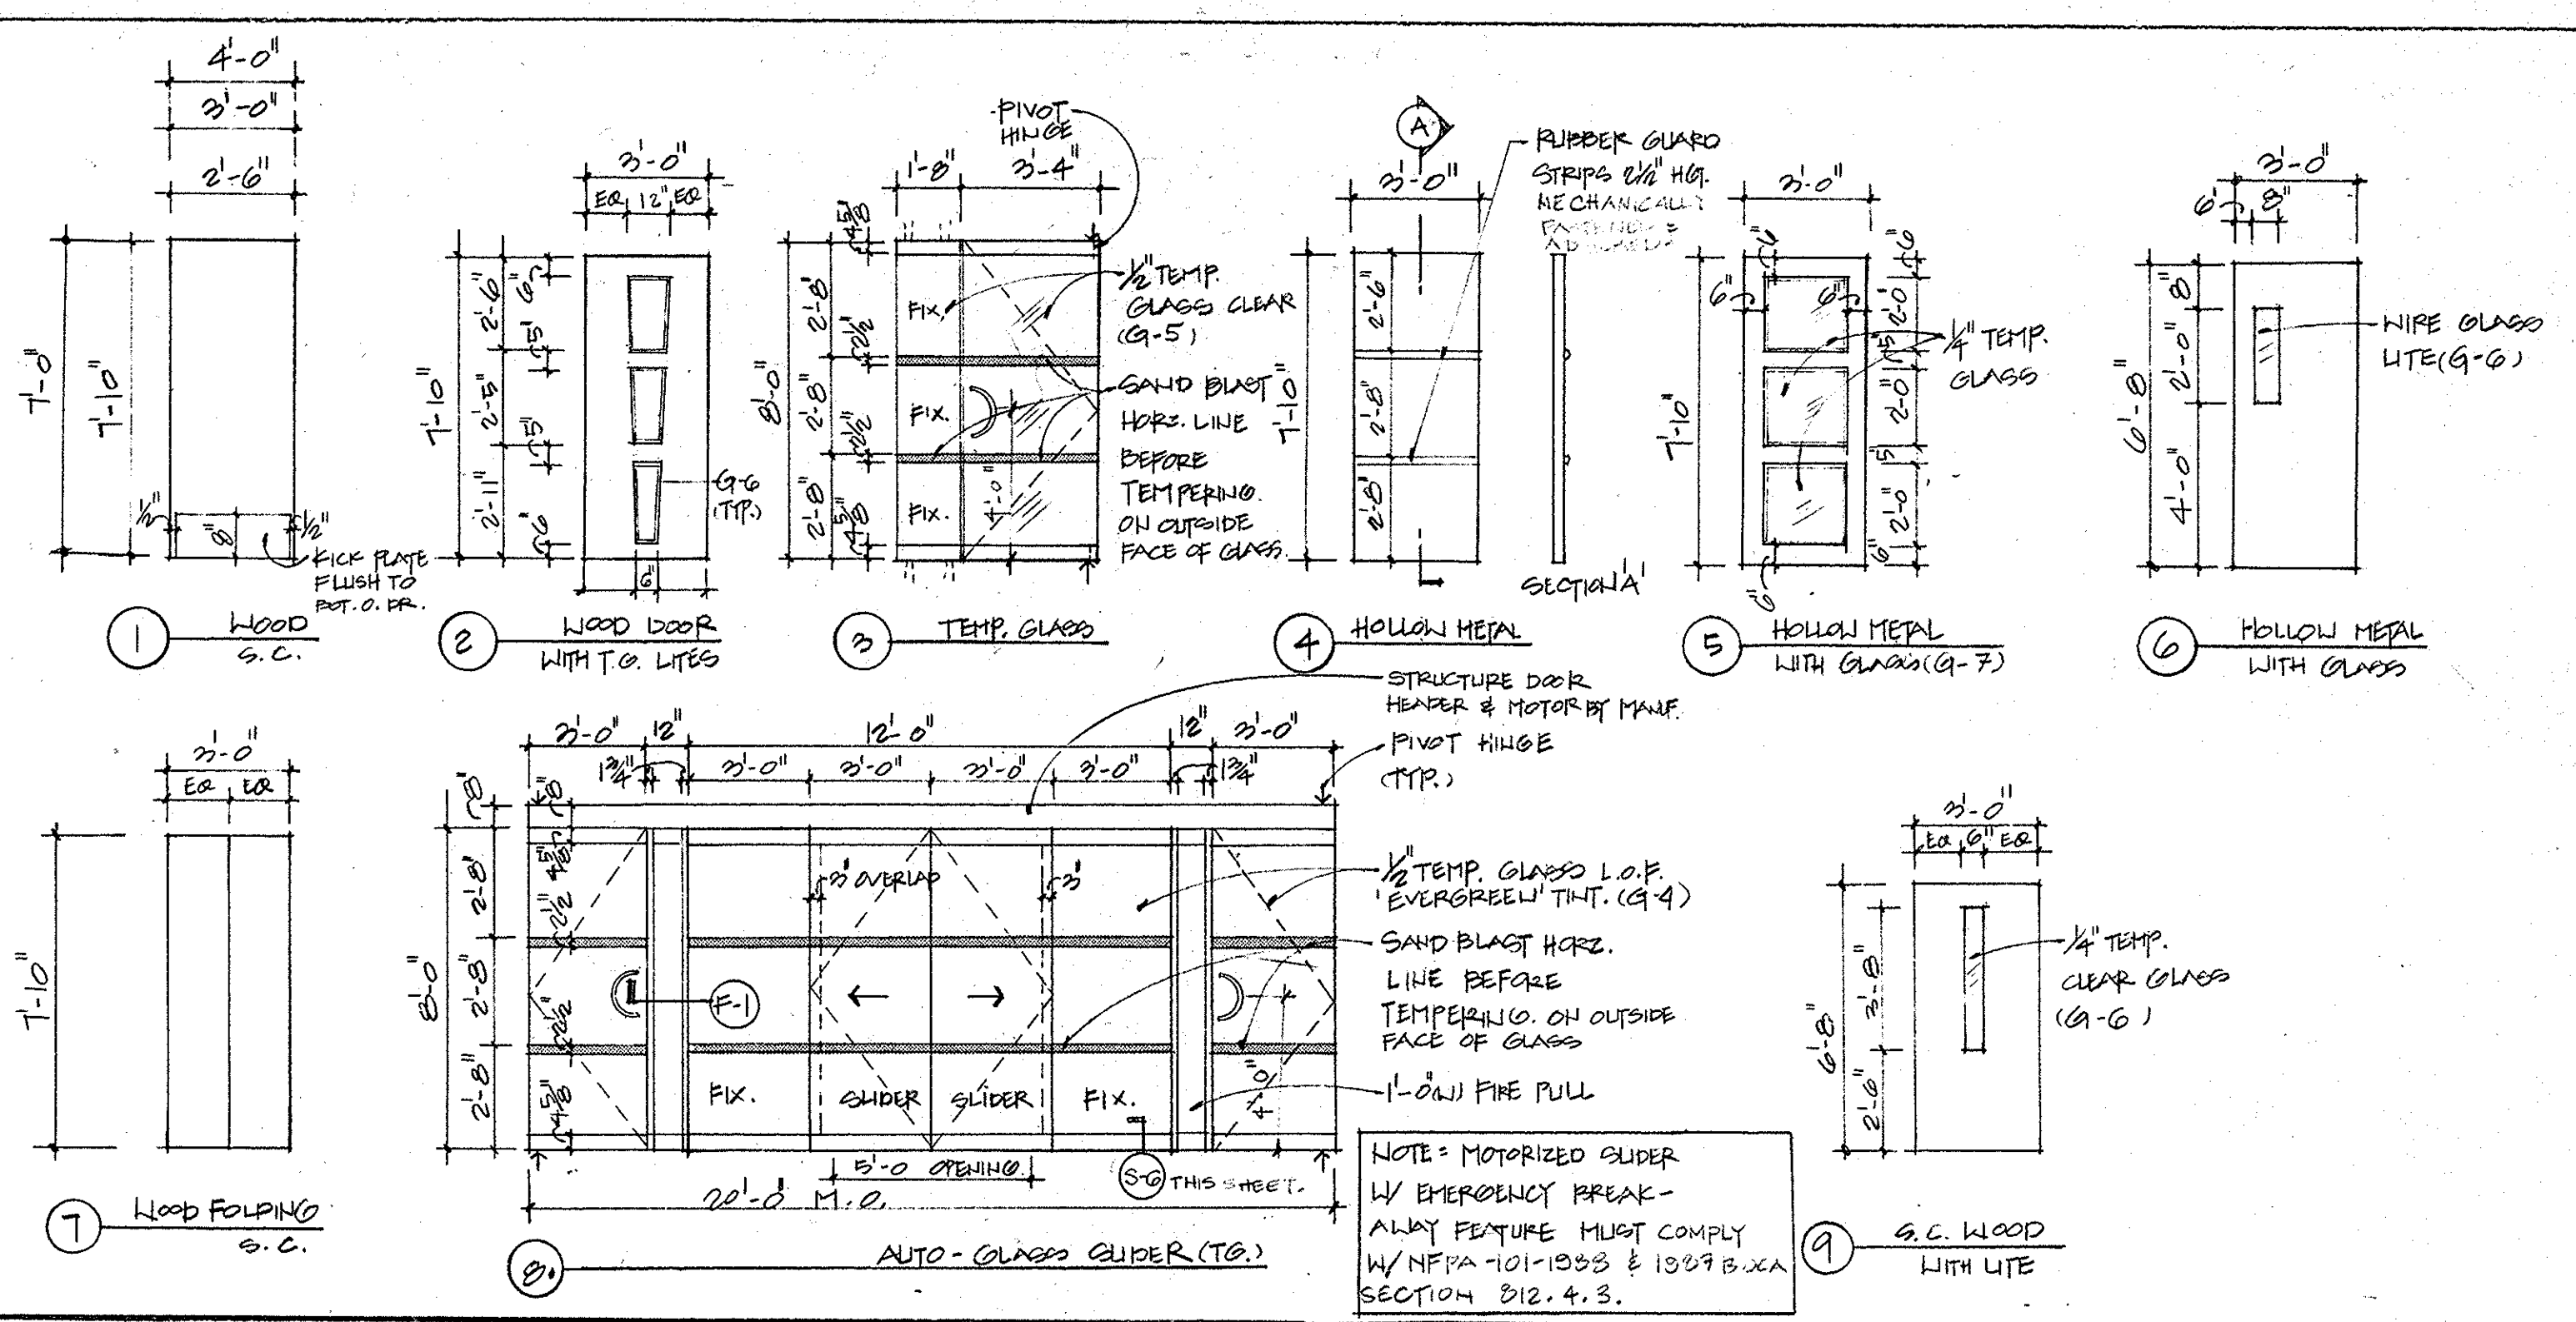 4'-0"
3'-0"
2'-6"
7'-0"
7'-10"
1/2"
8"
1/2"
KICK PLATE
FLUSH TO
BOT. O. DR.
1
WOOD
S.C.
3'-0"
EQ 12" EQ
7'-10"
2'-6"
2'-5"
2'-11"
6"
5"
5"
6"
G-6
(TYP.)
6"
2
WOOD DOOR
WITH T.G. LITES
PIVOT
HINGE
1'-8" 3'-4"
4 5/8"
8'-0"
2'-8"
2'-8"
2'-8"
2 1/2"
2 1/2"
4 5/8"
FIX.
FIX.
FIX.
4'-0"
1/2" TEMP.
GLASS CLEAR
(G-5)
SAND BLAST
HORZ. LINE
BEFORE
TEMPERING.
ON OUTSIDE
FACE OF GLASS.
3
TEMP. GLASS
A
3'-0"
7'-10"
2'-6"
2'-8"
2'-8"
RUBBER GUARD
STRIPS 2 1/2" HG.
MECHANICALLY
SECTION 'A'
4
HOLLOW METAL
3'-0"
7'-10"
6"
6"
6"
6"
2'-0"
5"
2'-0"
5"
2'-0"
6"
6"
1/4" TEMP.
GLASS
5
HOLLOW METAL
WITH GLASS (G-7)
3'-0"
6" 8"
6'-8"
8"
2'-0"
4'-0"
WIRE GLASS
LITE (G-6)
6
HOLLOW METAL
WITH GLASS
3'-0"
EQ EQ
7'-10"
7
WOOD FOLDING
S.C.
STRUCTURE DOOR
HEADER & MOTOR BY MANF.
PIVOT HINGE
(TYP.)
3'-0" 12" 12'-0" 12" 3'-0"
1 3/4" 3'-0" 3'-0" 3'-0" 3'-0" 1 3/4"
8"
8"
8'-0"
2'-8"
2'-8"
2'-8"
4 5/8"
2 1/2"
2 1/2"
4 5/8"
3" OVERLAP
3"
F-1
FIX. SLIDER SLIDER FIX.
4'-0"
5'-0 OPENING.
S-6 THIS SHEET.
20'-0" M.O.
1/2" TEMP. GLASS L.O.F.
'EVERGREEN' TINT. (G-4)
SAND BLAST HORZ.
LINE BEFORE
TEMPERING. ON OUTSIDE
FACE OF GLASS
1'-0"(W) FIRE PULL
8.
AUTO-GLASS SLIDER (TG.)
NOTE: MOTORIZED SLIDER
W/ EMERGENCY BREAK-
AWAY FEATURE MUST COMPLY
W/ NFPA-101-1988 & 1987
SECTION 812.4.3.
3'-0"
EQ 6" EQ
6'-8"
3'-8"
2'-6"
1/4" TEMP.
CLEAR GLASS
(G-6)
9
S.C. WOOD
WITH LITE